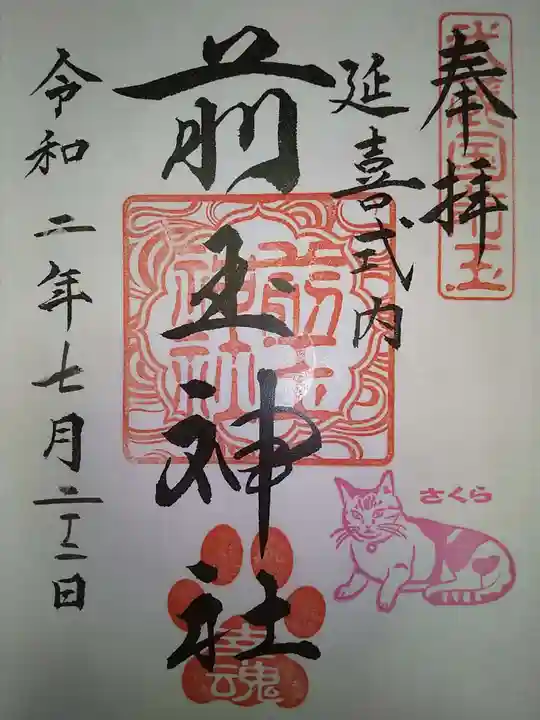 奉拝
武蔵国埼玉
延喜式内
前玉神社
前玉神社
さくら
幸魂
令和二年七月二十二日